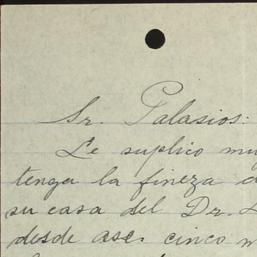 Sr. Palasios:
Le suplico muy
tenga la fineza d
su casa del Dr.
desde asc. cinco m